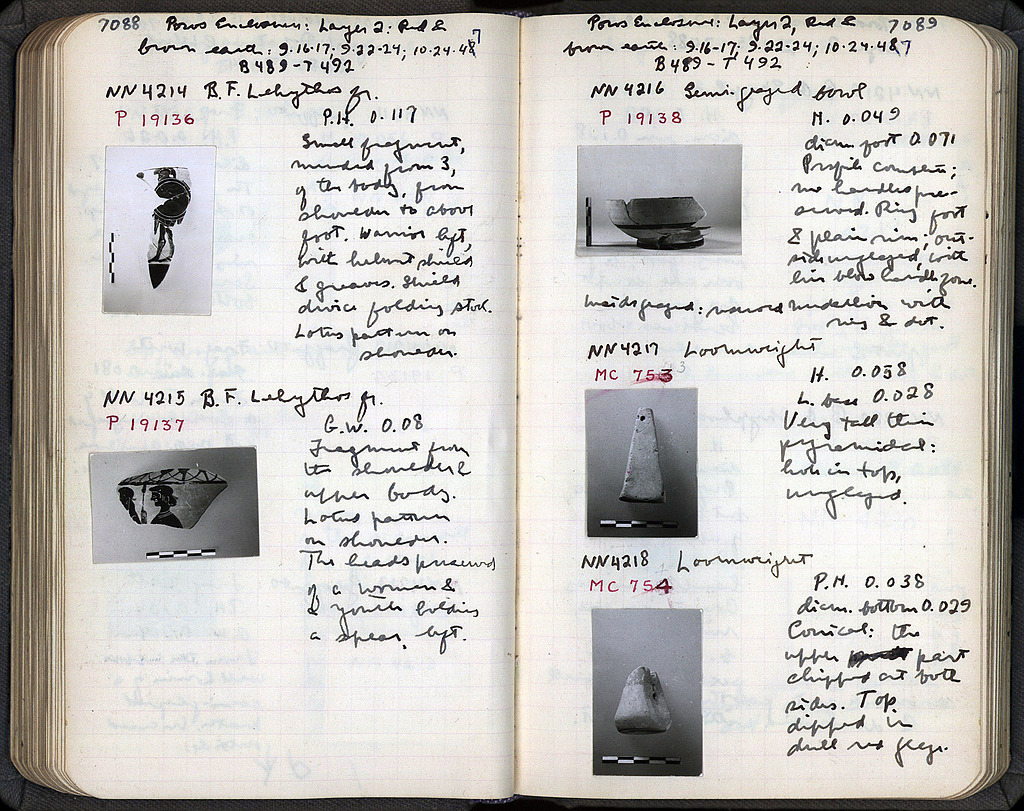 7088 Poros Enclosure: Layer 2: Red &
brown earth: 9.16-17; 9.22-24; 10-24-47
B 489 - T 492
NN 4214 B.F. Lekythos fr.
P 19136
P.H. 0.117
Small fragment,
mended from 3,
of the body, from
shoulder to above
foot. Warrior left,
with helmet shield
& greaves. Shield
device folding stool.
Lotus pattern on
shoulder.
NN 4215 B.F. Lekythos fr.
P 19137
G.W. 0.08
Fragment from
the shoulder &
upper body.
Lotus pattern
on shoulder.
The heads preserved
of a woman &
a youth holding
a spear, left.
Poros Enclosure: Layer 2, Red & 7089
brown earth: 9.16-17; 9.22-24; 10-24-47
B489 - T 492
NN 4216 Semi-glazed bowl
P 19138
H. 0.049
diam foot 0.071
Profile complete;
no handles pre-
served. Ring foot
& plain rim; out-
side unglazed, with
line below handle zone.
Inside glazed: reserved medallion with
ring & dot.
NN 4217 Loomweight
MC 753
H. 0.058
L. base 0.028
Very tall thin
pyramidal:
hole in top,
unglazed.
NN4218 Loomweight
MC 754
P.H. 0.038
diam. bottom 0.029
Conical: the
upper part
chipped at both
sides. Top
dipped in
dull red glaze.